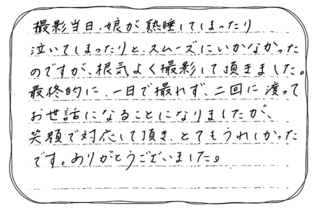 撮影当日、娘が熟睡してしまったり
泣いてしまったりと、スムーズにいかなかった
のですが、根気よく撮影して頂きました。
最終的に、一日で撮れず、二回に渡って
お世話になることになりましたが、
笑顔で対応して頂き、とてもうれしかった
です。ありがとうございました。